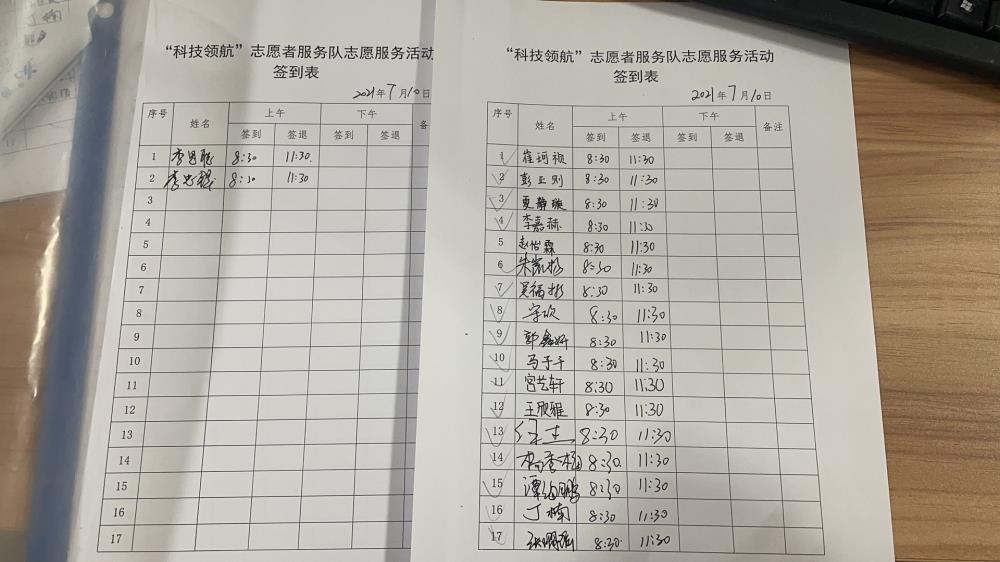 “科技领航”志愿者服务队志愿服务活动
签到表
2021年7月10日
序号 姓名 上午 下午 备
签到 签退 签到 签退
1 8:30 11:30
2 8:30 11:30
3
4
5
6
7
8
9
10
11
12
13
14
15
16
17
“科技领航”志愿者服务队志愿服务活动
签到表
2021年7月10日
序号 姓名 上午 下午 备注
签到 签退 签到 签退
1 崔珂祯 8:30 11:30
2 彭正则 8:30 11:30
3 夏静璇 8:30 11:30
4 李嘉赫 8:30 11:30
5 赵怡霖 8:30 11:30
6 8:30 11:30
7 吴福彬 8:30 11:30
8 宇欣 8:30 11:30
9 郭鑫妍 8:30 11:30
10 马于千 8:30 11:30
11 宫艺轩 8:30 11:30
12 王欣雅 8:30 11:30
13 8:30 11:30
14 8:30 11:30
15 8:30 11:30
16 丁楠 8:30 11:30
17 8:30 11:30